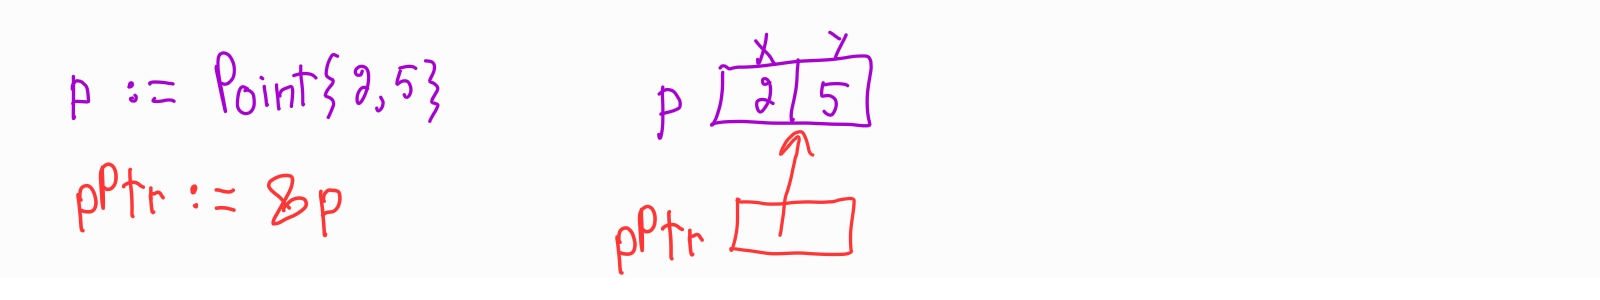 p := Point{2,5}
pPtr := &p
X Y
p 2 5
pPtr